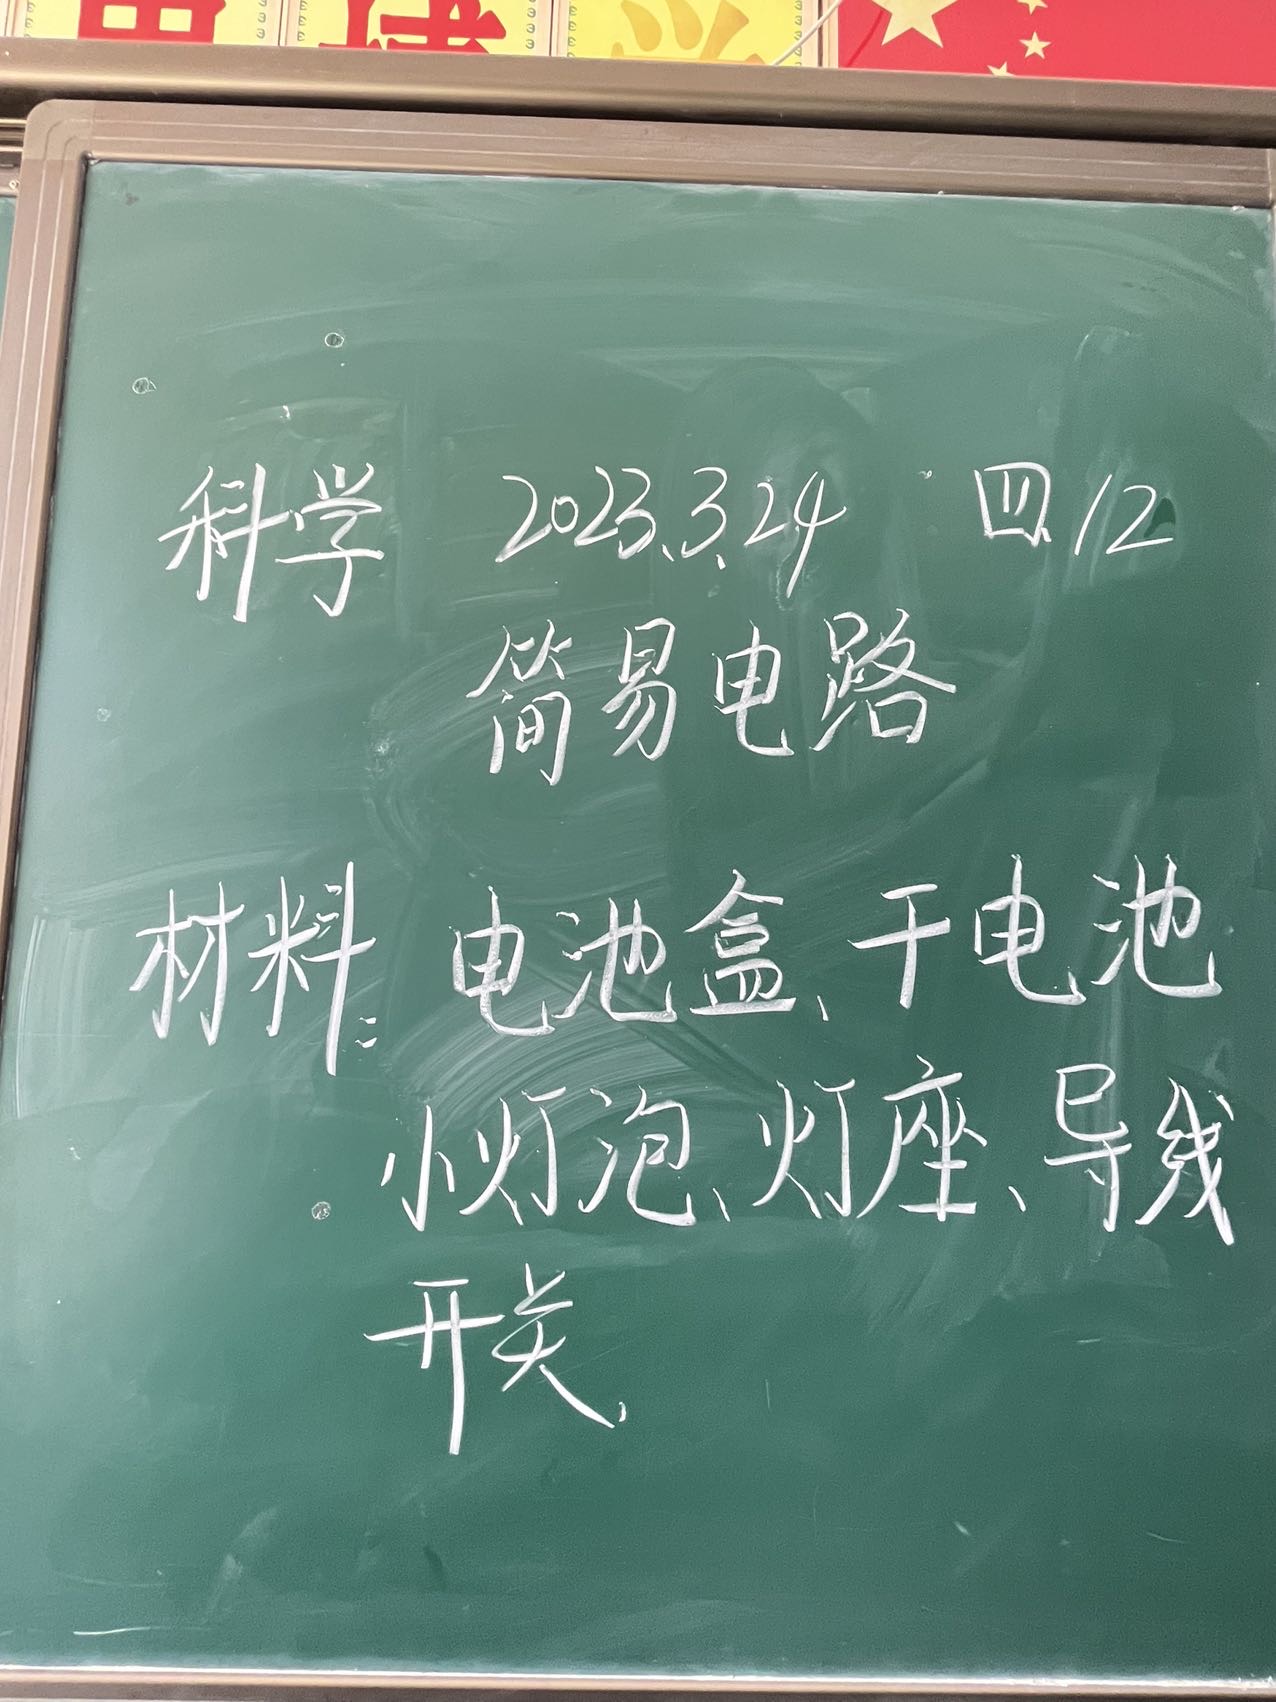 科学 2023.3.24 四.12
简易电路
材料: 电池盒、干电池
小灯泡、灯座、导线
开关、